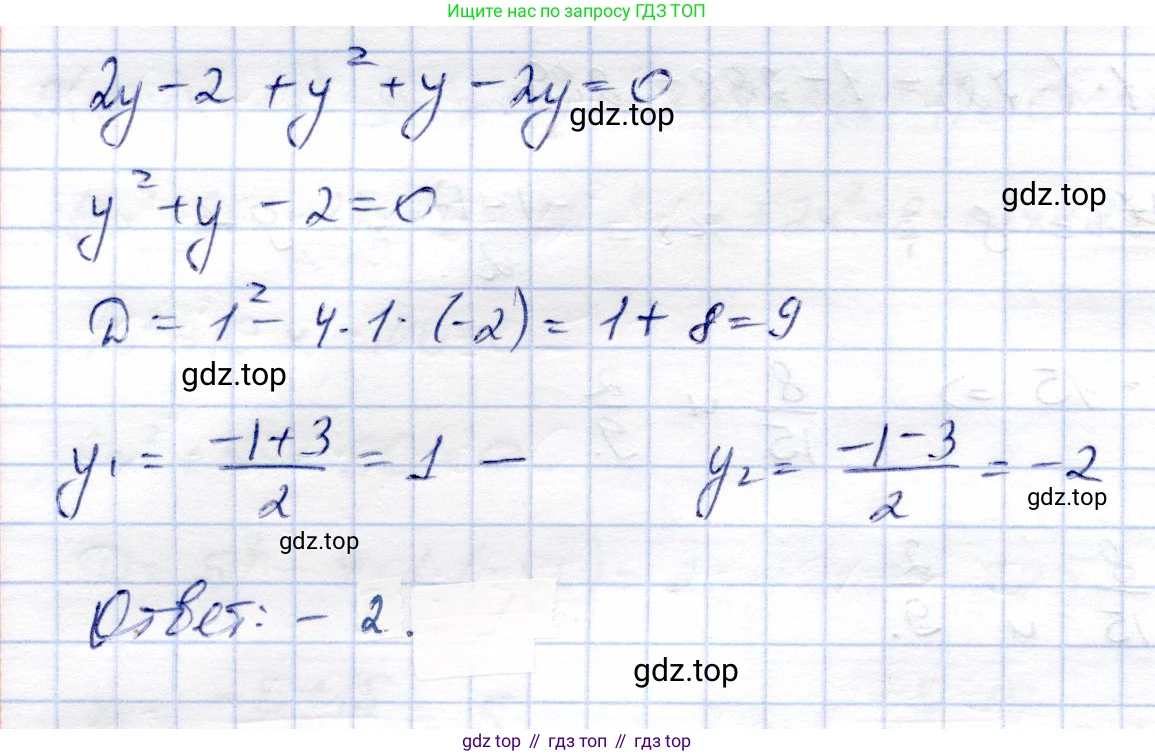 Ищите нас по запросу ГДЗ ТОП
2y - 2 + y² + y - 2y = 0
gdz.top
y² + y - 2 = 0
gdz.top
D = 1² - 4 · 1 · (-2) = 1 + 8 = 9
gdz.top
y₁ = (-1+3)/2 = 1 — y₂ = (-1-3)/2 = -2
gdz.top
gdz.top
Ответ: - 2.
gdz.top
gdz top // гдз топ // гдз top